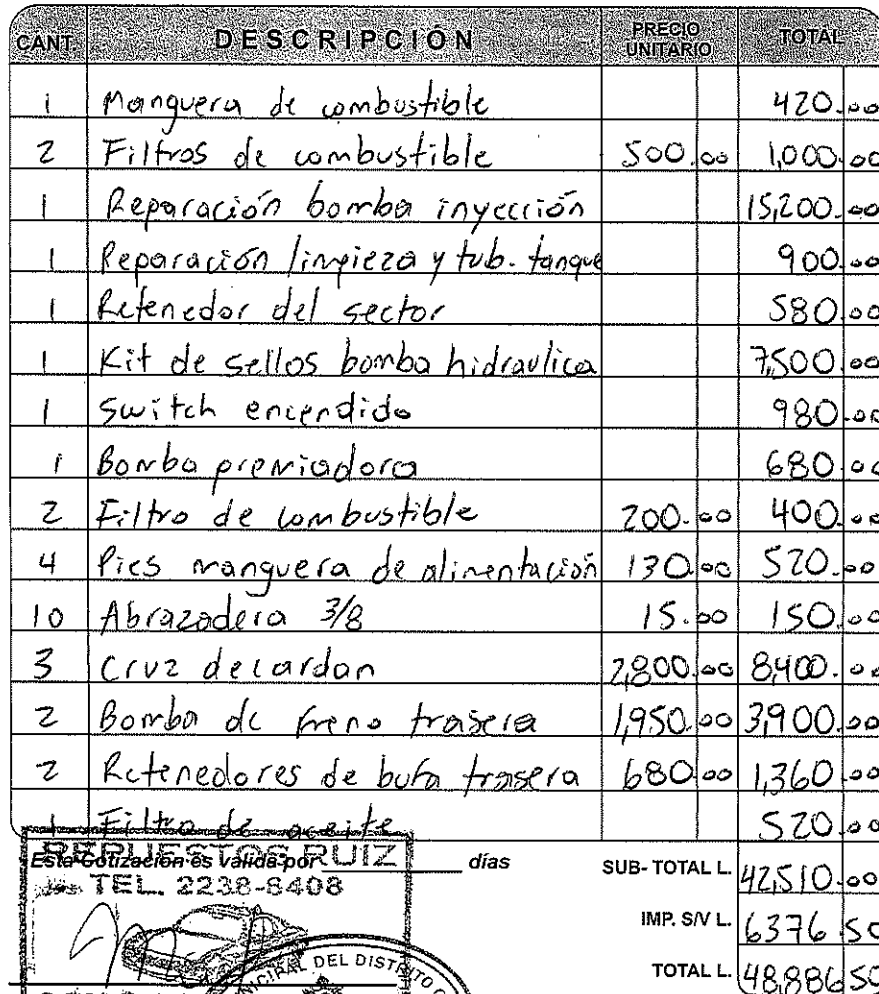 CANT. DESCRIPCIÓN PRECIO UNITARIO TOTAL
1 Manguera de combustible 420.00
2 Filtros de combustible 500.00 1,000.00
1 Reparación bomba inyección 15,200.00
1 Reparación limpieza y tub. tanque 900.00
1 Retenedor del sector 580.00
1 Kit de sellos bomba hidraulica 7,500.00
1 Switch encendido 980.00
1 Bomba premiadora 680.00
2 Filtro de combustible 200.00 400.00
4 Pies manguera de alimentación 130.00 520.00
10 Abrazadera 3/8 15.00 150.00
3 Cruz de cardan 2,800.00 8,400.00
2 Bomba de freno trasera 1,950.00 3,900.00
2 Retenedores de bufa trasera 680.00 1,360.00
1 Filtro de aceite 520.00
REPUESTOS RUIZ
Esta Cotización es válida por días SUB-TOTAL L. 42,510.00
TEL. 2238-8408
IMP. S/V L. 6376.50
DEL DISTRITO
TOTAL L. 48,886.50